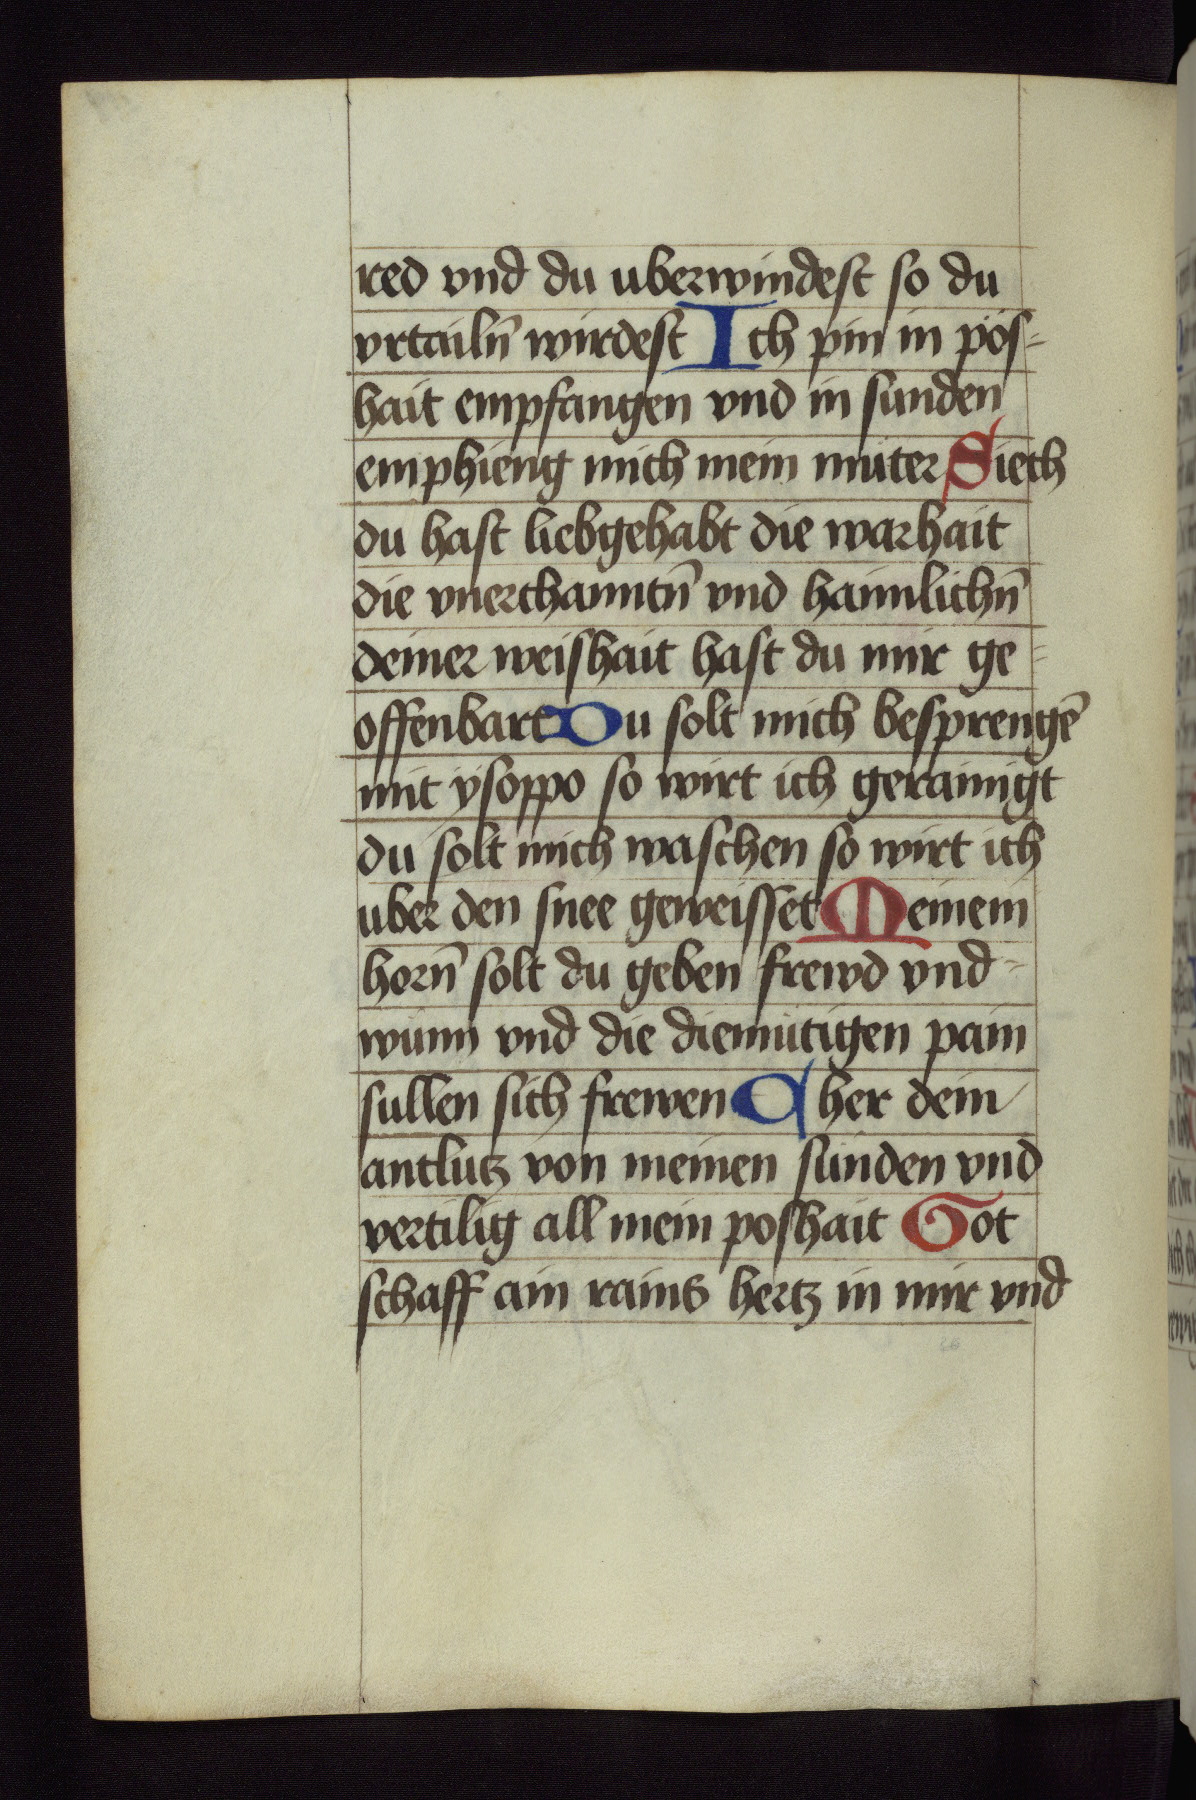 red vnd du uberwindest so du
vrtailn̄ wirdest Ich pin in pös-
hait empfangen vnd in sunden
emphieng mich mein muter Siech
du hast liebgehabt die warhait
die vnerchanntn̄ vnd haimlichn̄
deiner weishait hast du mir ge-
offenbart Du solt mich besprengē
mit ysoppo so wirt ich gerainigt
du solt mich waschen so wirt ich
uber den snee geweisset Meinem
horn̄ solt du geben frewd vnd-
wunn vnd die diemutigen pain
sullen sich frewen Cher dein
antlutz von meinen sunden vnd
vertilig all mein poshait Got
schaff ain rains hertz in mir vnd